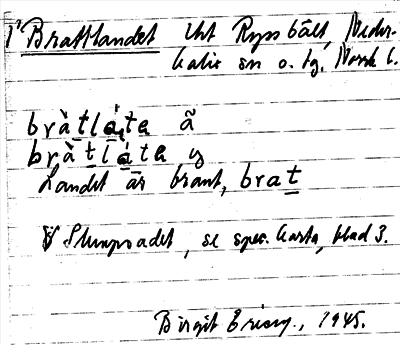 Brattlandet ikt Ryssbält, Neder-
kalix sn o. tg, Norrb l.
bràtláte ã
bràtláte y
Landet är brant, brat
se spec. karta, blad 3.
Birgit Ericss., 1945.